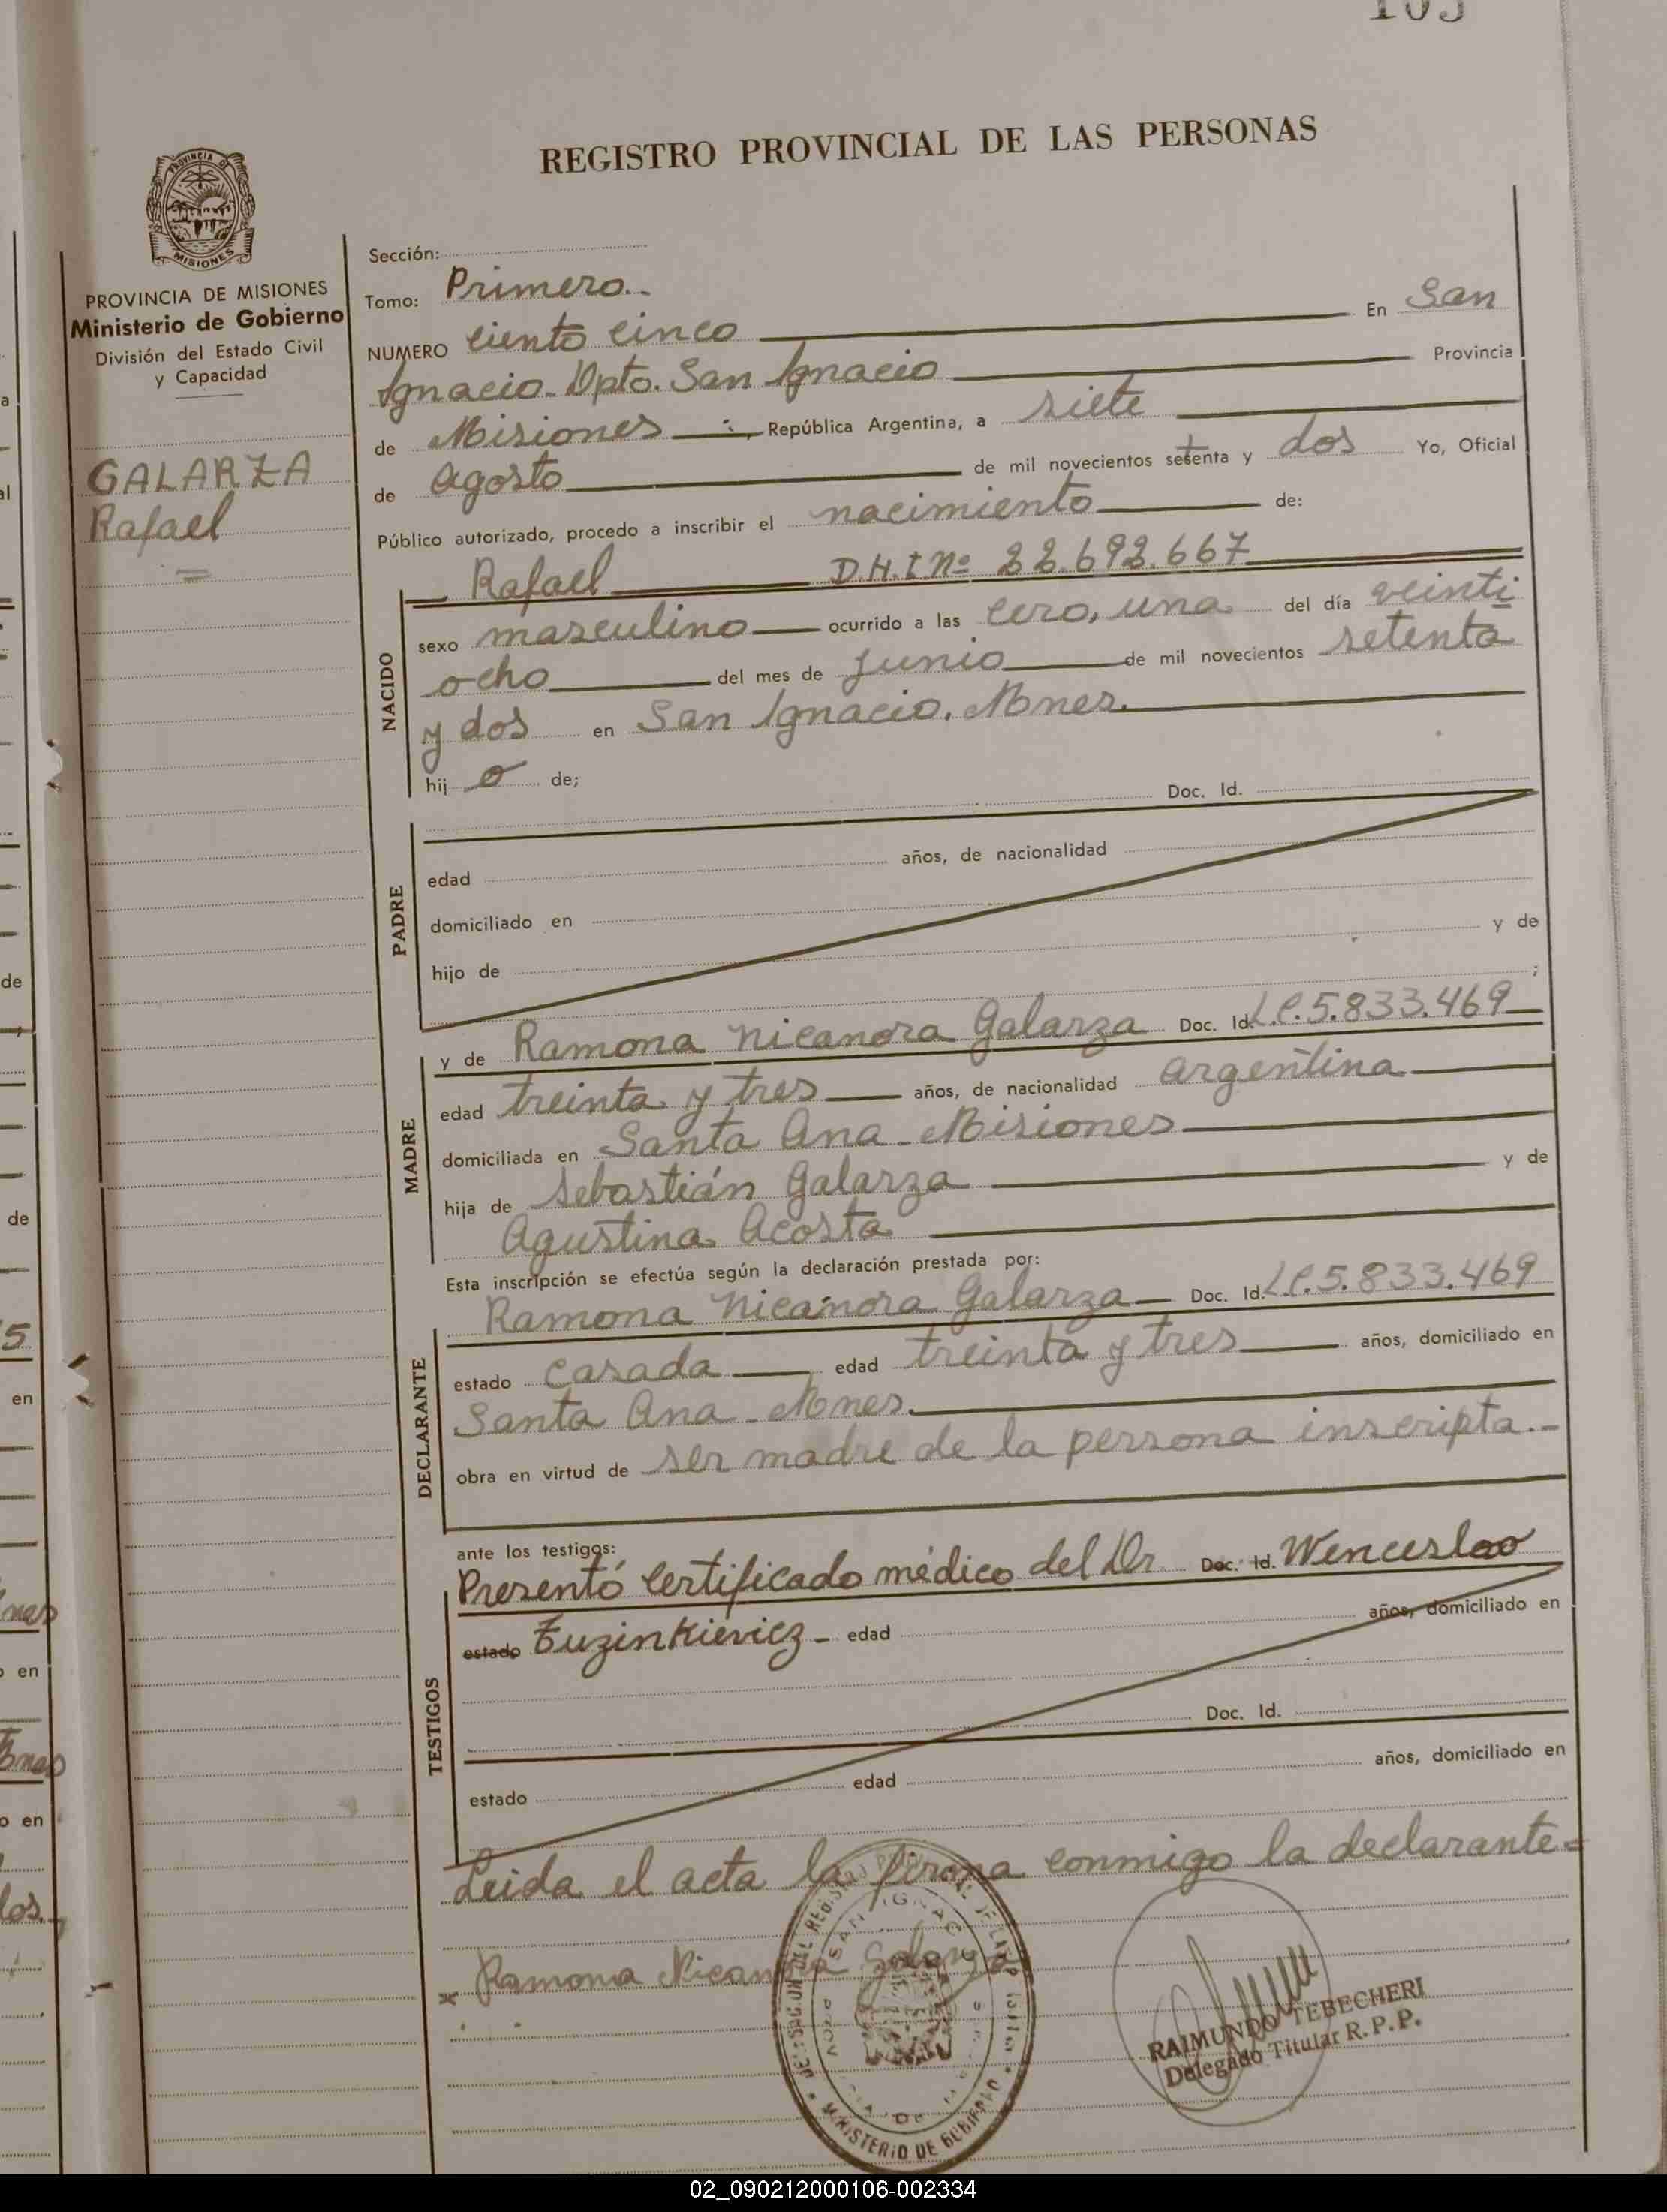 REGISTRO PROVINCIAL DE LAS PERSONAS
MISIONES
PROVINCIA DE MISIONES
Ministerio de Gobierno
División del Estado Civil
y Capacidad
GALARZA
Rafael
Sección:
Tomo: Primero.-
NUMERO Ciento Cinco En San
Ignacio - Dpto. San Ignacio Provincia
de Misiones República Argentina, a siete
de Agosto de mil novecientos setenta y dos Yo, Oficial
Público autorizado, procedo a inscribir el nacimiento de:
NACIDO
Rafael D.N.I Nº 22.692.667
sexo masculino ocurrido a las Cero, una del día veinti
ocho del mes de Junio de mil novecientos setenta
y dos en San Ignacio. Mnes.
hijo de;
PADRE
Doc. Id.
edad años, de nacionalidad
domiciliado en
hijo de y de
MADRE
y de Ramona Nicanora Galarza Doc. Id. L.C. 5.833.469
edad treinta y tres años, de nacionalidad argentina
domiciliada en Santa Ana - Misiones
hija de Sebastián Galarza y de
Agustina Acosta
Esta inscripción se efectúa según la declaración prestada por:
DECLARANTE
Ramona Nicanora Galarza Doc. Id. L.C. 5.833.469
estado casada edad treinta y tres años, domiciliado en
Santa Ana - Mnes.
obra en virtud de ser madre de la persona inscripta.-
TESTIGOS
ante los testigos:
Presentó Certificado médico del Dr. Doc. Id. Wenceslao
estado Tuzinkievicz - edad años, domiciliado en
Doc. Id.
estado edad años, domiciliado en
Leida el acta la firma conmigo la declarante=
x Ramona Nicanora Galarza
SAN IGNACIO
MINISTERIO DE GOBIERNO
RAIMUNDO TEBECHERI
Delegado Titular R.P.P.
02_090212000106-002334